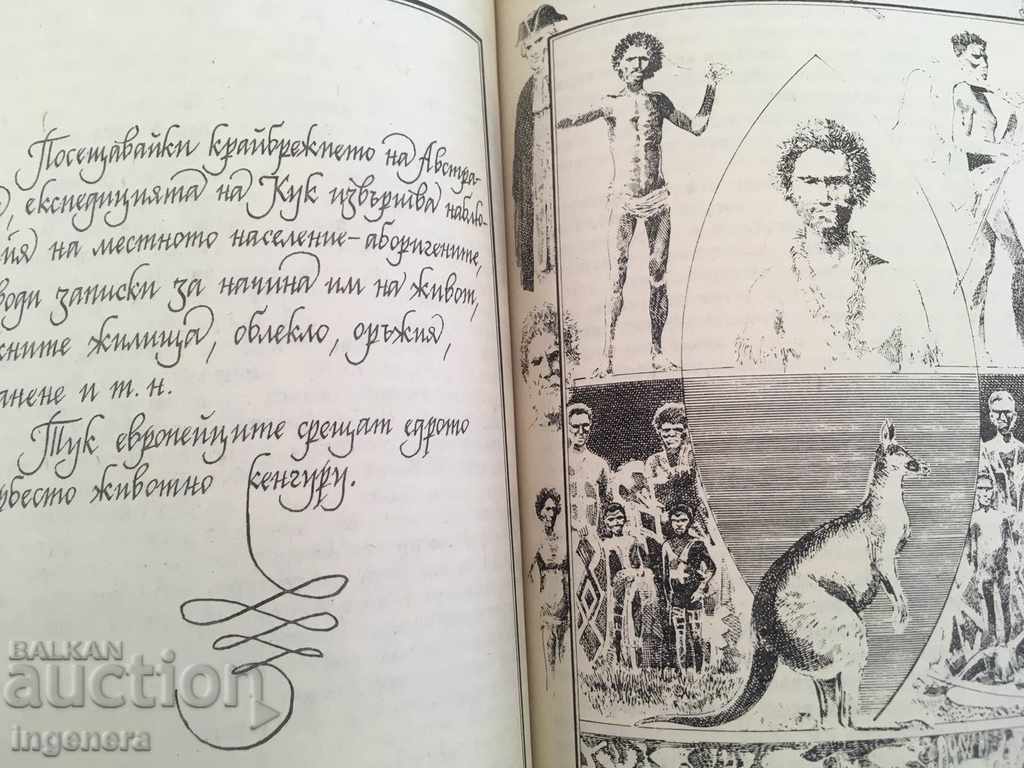 Посещавайки крайбрежието на Австра-
, експедицията на Кук извършва наблю-
ия на местното население – аборигените,
води записки за начина им на живот,
хните жилища, облекло, оръжия,
анене и т. н.
Тук европейците срещат едрото
бесто животно кенгуру.
BALKAN
auction
ingenera